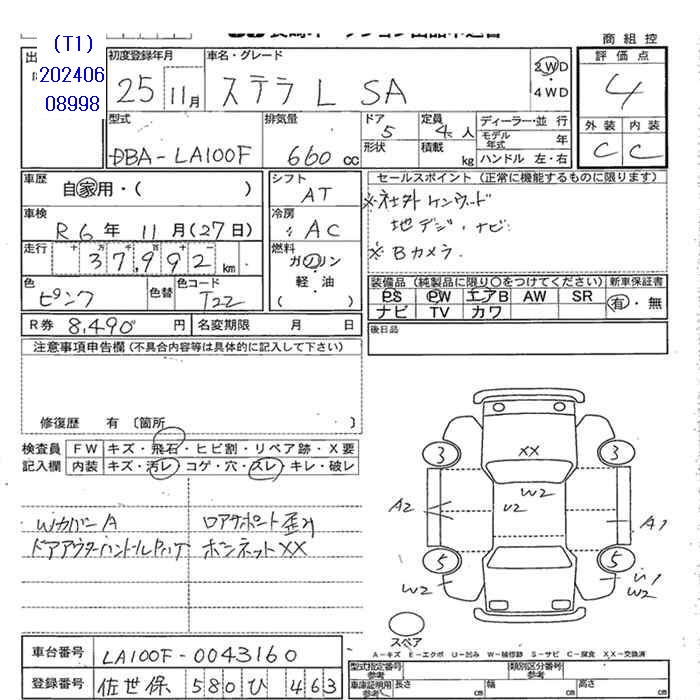 (T1)
202406
08998
商組控
初度登録年月
25 11月
車名・グレード
ステラ L SA
2WD
4WD
評価点
4
外装 内装
C C
型式
DBA-LA100F
排気量
660 cc
ドア
5
形状
定員
4 人
積載 kg
ディーラー・並行
モデル年式 年
ハンドル 左・右
車歴
自家用・( )
車検
R6年 11月(27日)
走行
37,992 km
色
ピンク
色替
色コード
T22
シフト
AT
冷房
AC
燃料
ガソリン
軽・油
セールスポイント (正常に機能するものに限ります)
地デジ・ナビ
※Bカメラ
装備品 (純製品に限り○をつけてください)
新車保証書
PS PW エアB AW SR
ナビ TV カワ
有・無
R券 8,490 円
名変期限 月 日
後日品
注意事項申告欄 (不具合内容等は具体的に記入して下さい)
修復歴 有 〔箇所 〕
検査員記入欄
FW キズ・飛石・ヒビ割・リペア跡・X要
内装 キズ・汚レ・コゲ・穴・スレ・キレ・破レ
Wカバー A
ロアサポート歪ミ
ボンネットXX
3
3
XX
W2
U2
A2
A1
5
5
W2
U1
W2
スペア
A-キズ E-エクボ U-凹み W-補修跡 S-サビ C-腐食 XX-交換済
車台番号
LA100F-0043160
登録番号
佐世保 580 ひ 463
型式指定番号
参考
類別区分番号
参考
車庫証明用
参考
長さ cm
幅 cm
高さ cm